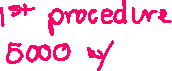 1st procedure
5000 w/